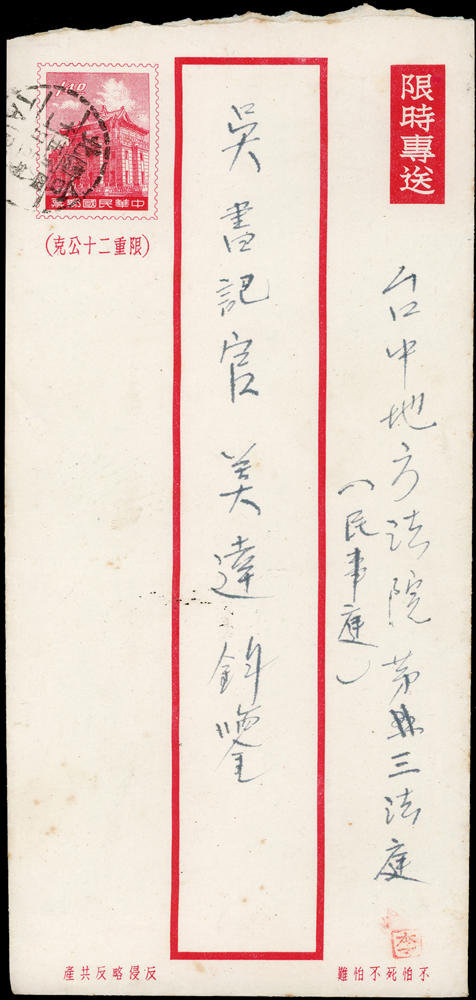 限時專送
台中地方法院第三法庭
(民事庭)
吳書記官美達鈞鑒
1.40
中華民國郵票
(限重二十公克)
不怕死不怕難
反侵略反共產
李